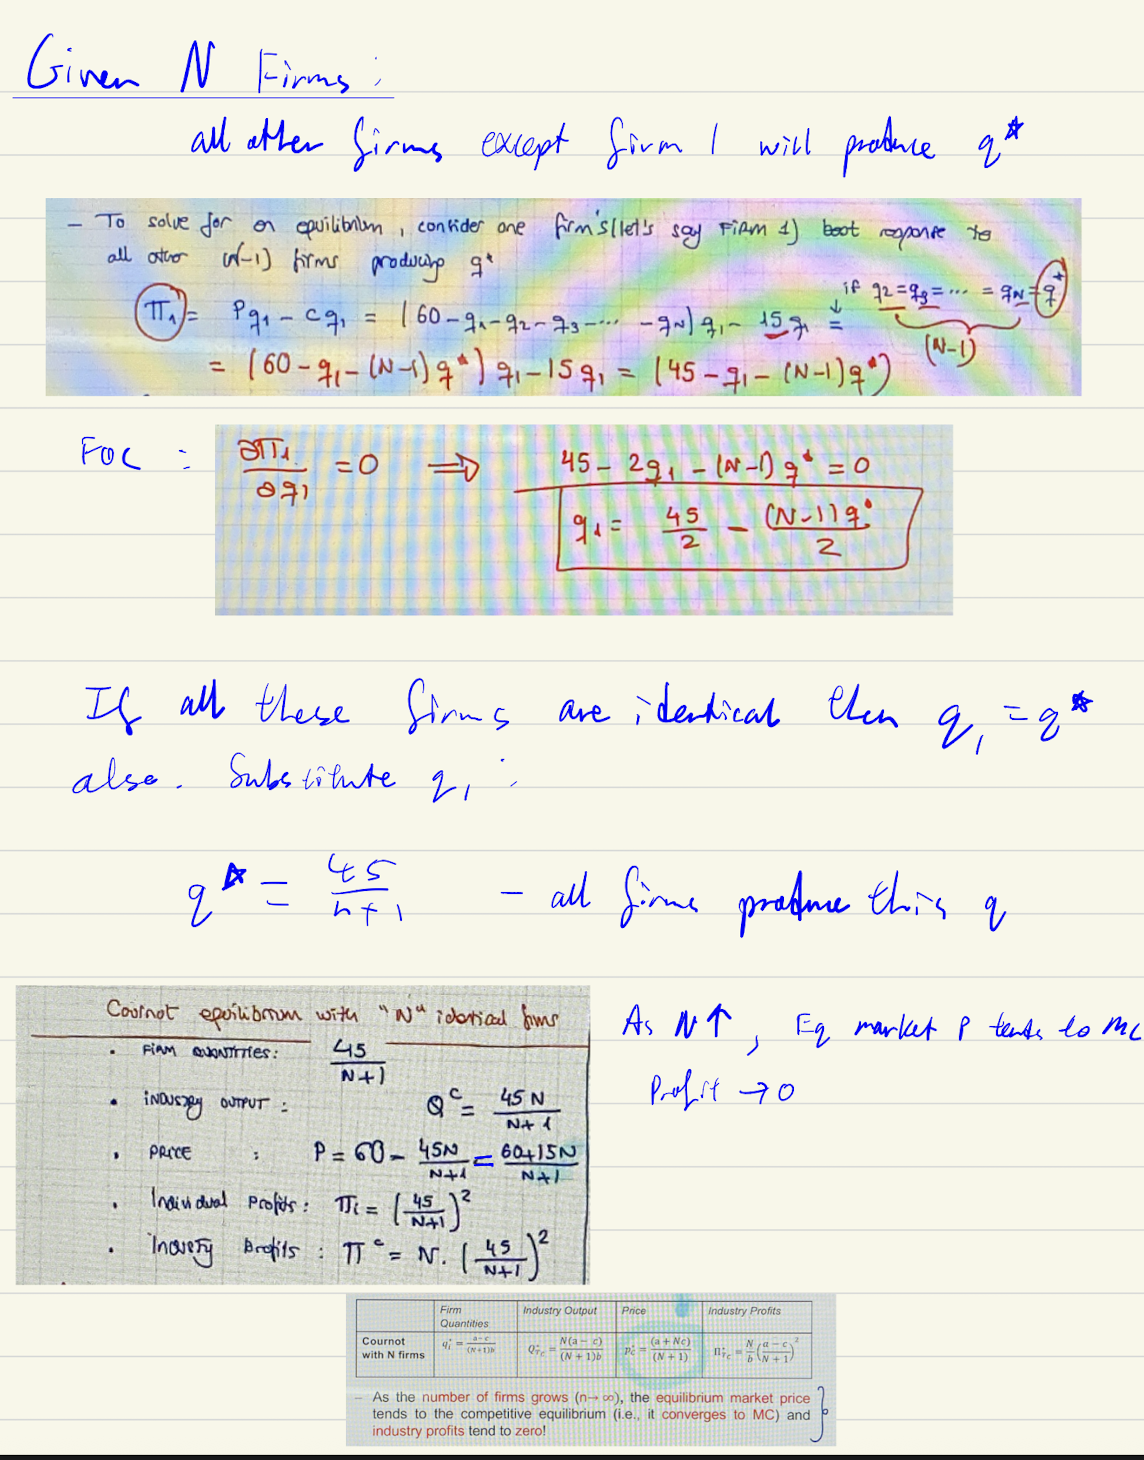 Given N Firms :
all other firms except firm 1 will produce q*
– To solve for an equilibrium, consider one firm's (let's say FIRM 1) best response to
all other (N-1) firms producing q*
if q2=q3=··· = qN=q*
Π1 = Pq1 - cq1 = (60-q1-q2-q3-··· -qN) q1 - 15q1 =
(N-1)
= (60-q1-(N-1)q*) q1-15q1 = (45-q1-(N-1)q*)
FOC : ∂Π1/∂q1 = 0 ⟹ 45-2q1-(N-1)q* = 0
q1 = 45/2 - (N-1)q*/2
If all these firms are identical then q1 = q*
also. Substitute q1 :
q* = 45/n+1 - all firms produce this q
Cournot equilibrium with "N" identical firms
• FIRM QUANTITIES: 45/N+1
• INDUSTRY OUTPUT : Q^c = 45N/N+1
• PRICE : P = 60 - 45N/N+1 = 60+15N/N+1
• Individual Profits: Πi = (45/N+1)^2
• Industry Profits : Π^c = N. (45/N+1)^2
As N↑, Eq market P tends to MC
Profit → 0
Firm Quantities Industry Output Price Industry Profits
Cournot with N firms q*i = a-c/(N+1)b Q*Tc = N(a-c)/(N+1)b P*c = (a+Nc)/(N+1) Π*Tc = N/b (a-c/N+1)^2
– As the number of firms grows (n→ ∞), the equilibrium market price
tends to the competitive equilibrium (i.e., it converges to MC) and
industry profits tend to zero!